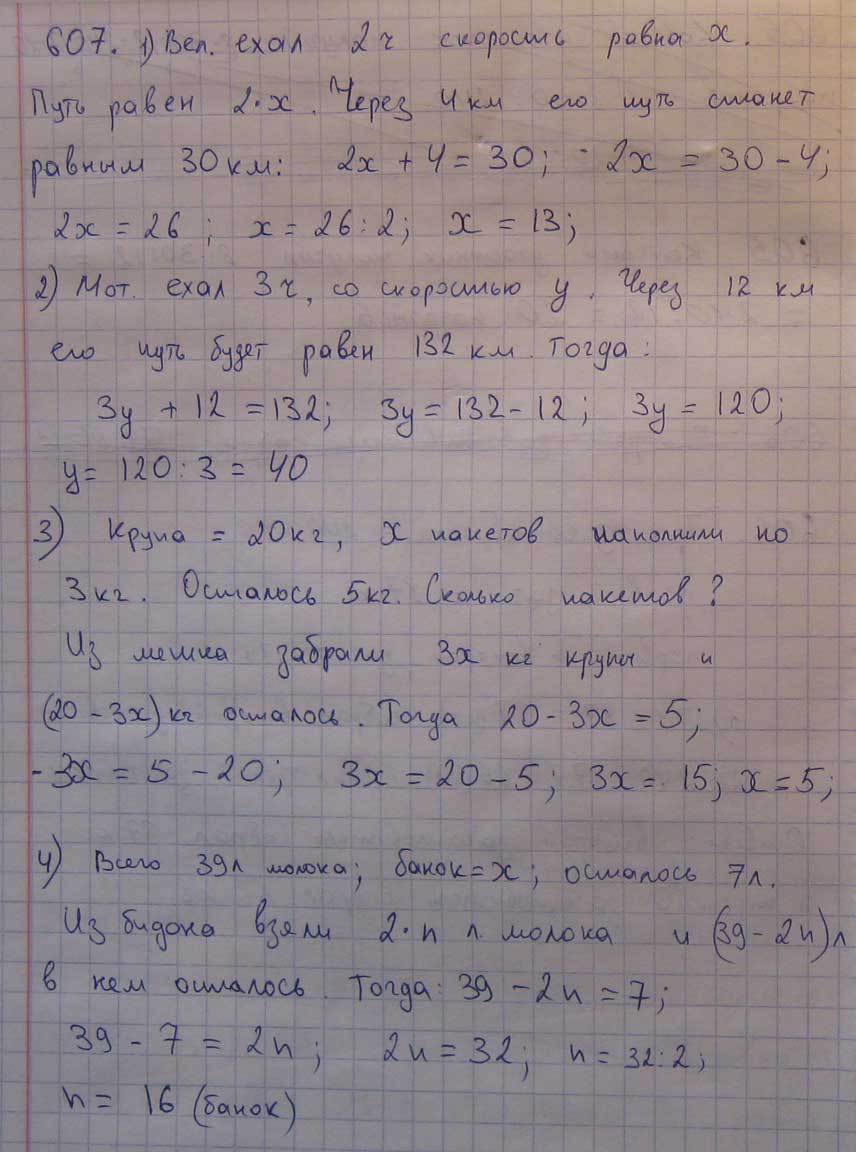 607. 1) Вел. ехал 2 ч скорость равна x.
Путь равен 2·x. Через 4 км его путь станет
равным 30 км: 2x + 4 = 30; 2x = 30 - 4;
2x = 26; x = 26 : 2; x = 13;
2) Мот. ехал 3 ч, со скоростью y. Через 12 км
его путь будет равен 132 км. Тогда:
3y + 12 = 132; 3y = 132 - 12; 3y = 120;
y = 120 : 3 = 40
3) Крупа = 20 кг, x пакетов наполнили по
3 кг. Осталось 5 кг. Сколько пакетов?
Из мешка забрали 3x кг крупы и
(20 - 3x) кг осталось. Тогда 20 - 3x = 5;
-3x = 5 - 20; 3x = 20 - 5; 3x = 15; x = 5;
4) Всего 39 л молока; банок = x; осталось 7 л.
Из бидона взяли 2·n л молока и (39 - 2n) л
в нем осталось. Тогда: 39 - 2n = 7;
39 - 7 = 2n; 2n = 32; n = 32 : 2;
n = 16 (банок)